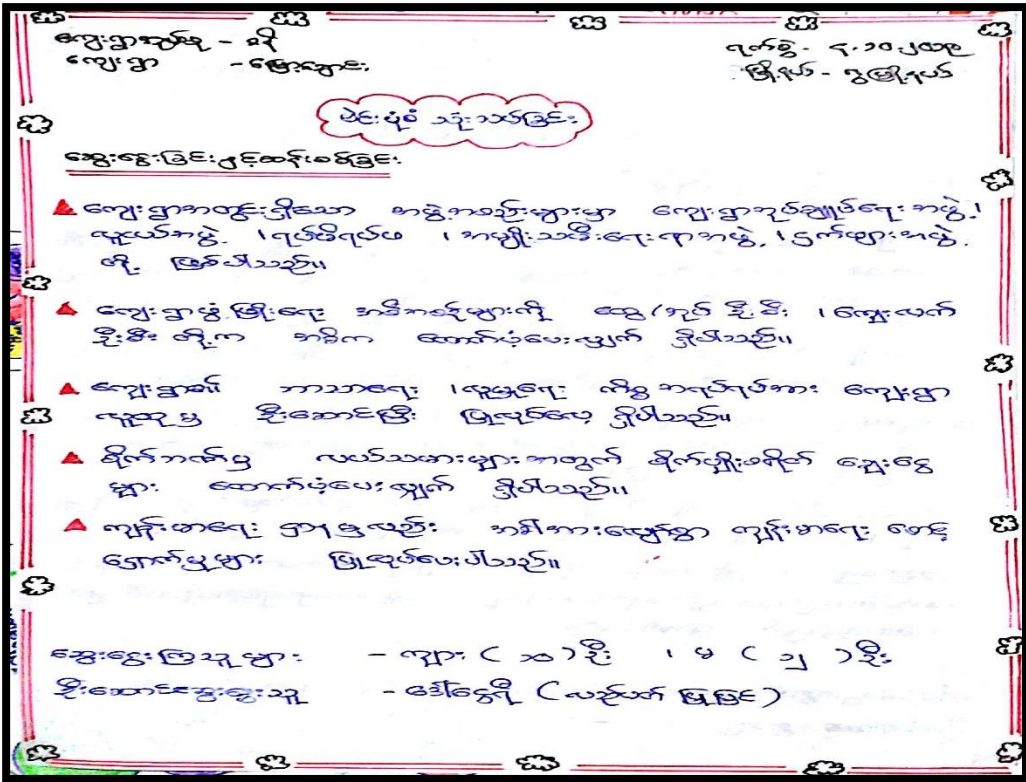 ကျေးရွာအုပ်စု - ခရို
ကျေးရွာ - မြောချောင်း
ရက်စွဲ - ၄.၁၀.၂၀၁၃
မြို့နယ် - ဂွမြို့နယ်
ဗဲင်းပုံစံ သုံးသပ်ခြင်း
ဆွေးနွေးခြင်းနှင့်ဆန်းစစ်ခြင်း
ကျေးရွာအတွင်းရှိသော အဖွဲ့အစည်းများမှာ ကျေးရွာအုပ်ချုပ်ရေးအဖွဲ့၊
လူငယ်အဖွဲ့ ၊ ရပ်မိရပ်ဖ ၊ အမျိုးသမီးရေးရာအဖွဲ့ ၊ ငှက်ဖျားအဖွဲ့
တို့ ဖြစ်ပါသည်။
ကျေးရွာဖွံ့ဖြိုးရေး အစီအစဉ်များကို ထွေ/အုပ် ဦးစီး ၊ ကျေးလက်
ဦးစီး တို့က အဓိက ထောက်ပံ့ပေးလျှက် ရှိပါသည်။
ကျေးရွာ၏ ဘာသာရေး ၊ လူမှုရေး ကိစ္စ အရပ်ရပ်အား ကျေးရွာ
လူထုမှ ဦးဆောင်ပြီး ပြုလုပ်လေ့ ရှိပါသည်။
စိုက်ဘဏ်မှ လယ်သမားများအတွက် စိုက်ပျိုးစရိတ် ချေးငွေ
များ ထောက်ပံ့ပေးလျှက် ရှိပါသည်။
ကျန်းမာရေး ဌာနမှလည်း အခါအားလျော်စွာ ကျန်းမာရေး စောင့်
ရှောက်မှုများ ပြုလုပ်ပေးပါသည်။
ဆွေးနွေးကြသူများ - ကျား ( ၁၀ ) ဦး ၊ မ ( ၁၂ ) ဦး
ဦးဆောင်ဆွေးနွေးသူ - ဒေါ်ငွေရီ ( လှည့်ပတ် မြို့မြင် )